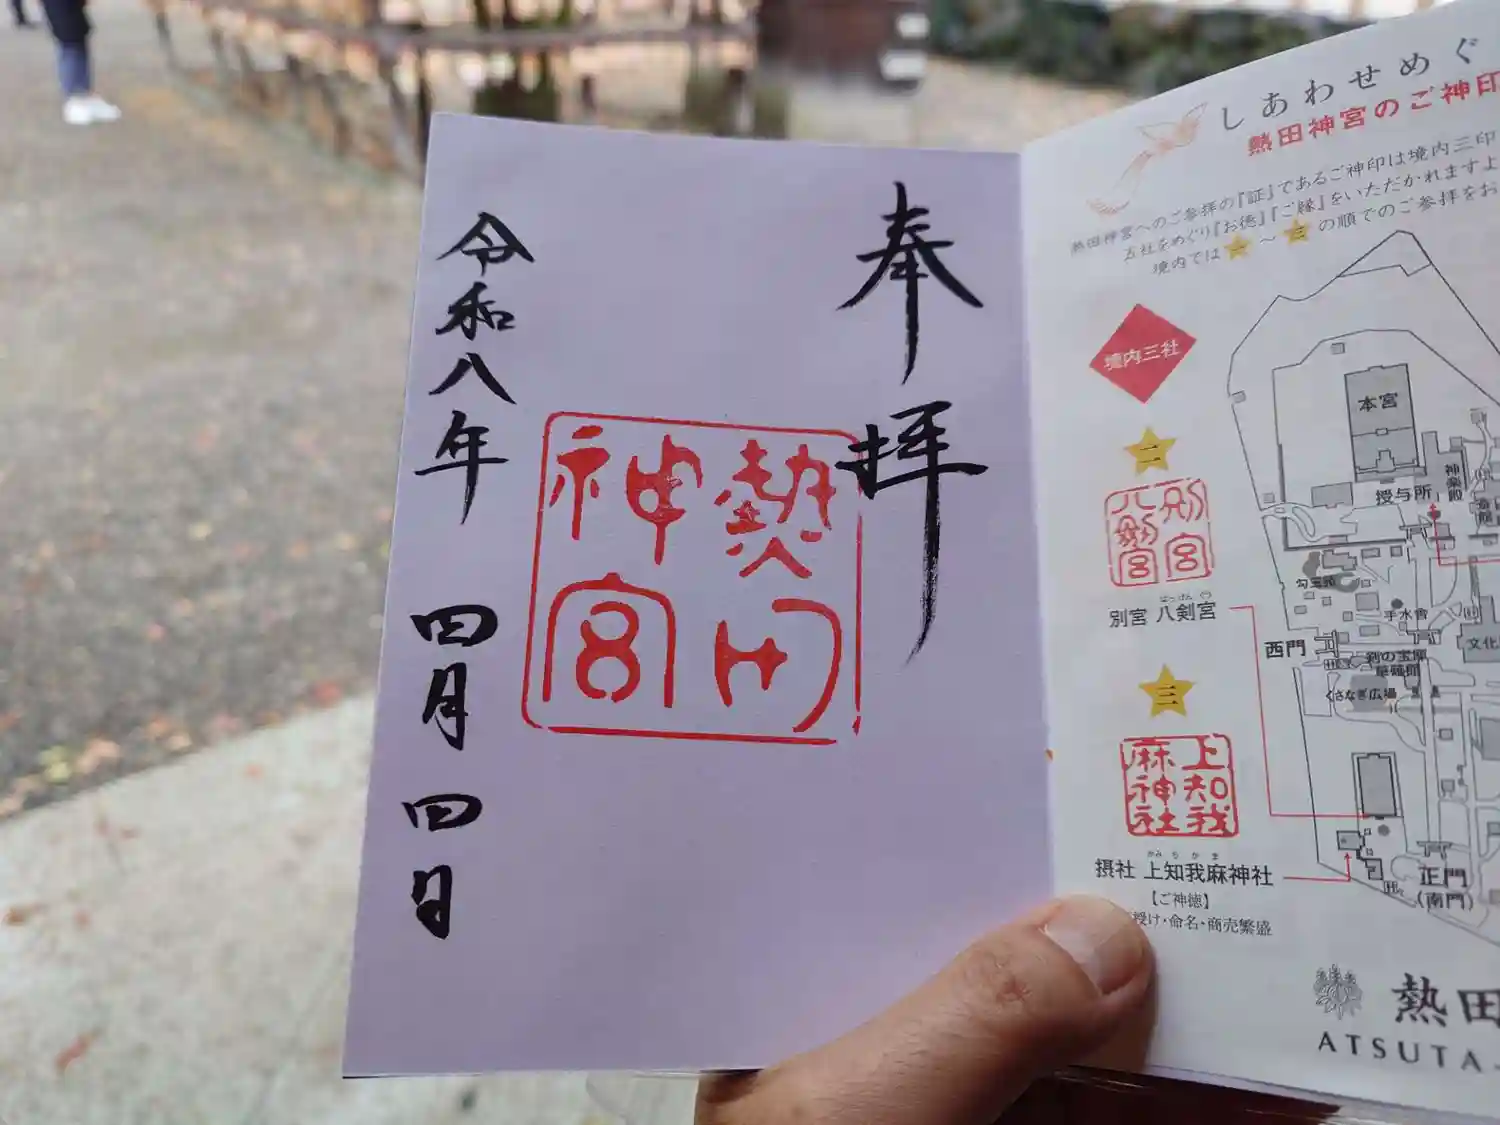 奉拝
熱田神宮
令和八年 四月 四日
しあわせめぐ
熱田神宮のご神印
熱田神宮へのご参拝の『証』であるご神印は境内三印
五社をめぐり『お徳』『ご縁』をいただかれますよ
境内では一〜三の順でのご参拝をお
境内三社
二
別宮八剣宮
別宮 八剣宮
三
上知我麻神社
かみちかま
摂社 上知我麻神社
【ご神徳】
授け・命名・商売繁盛
本宮
神楽殿
授与所
勾玉池
手水舎
西門
文化
剣の宝庫
草薙館
くさなぎ広場
正門
(南門)
熱田
ATSUTA